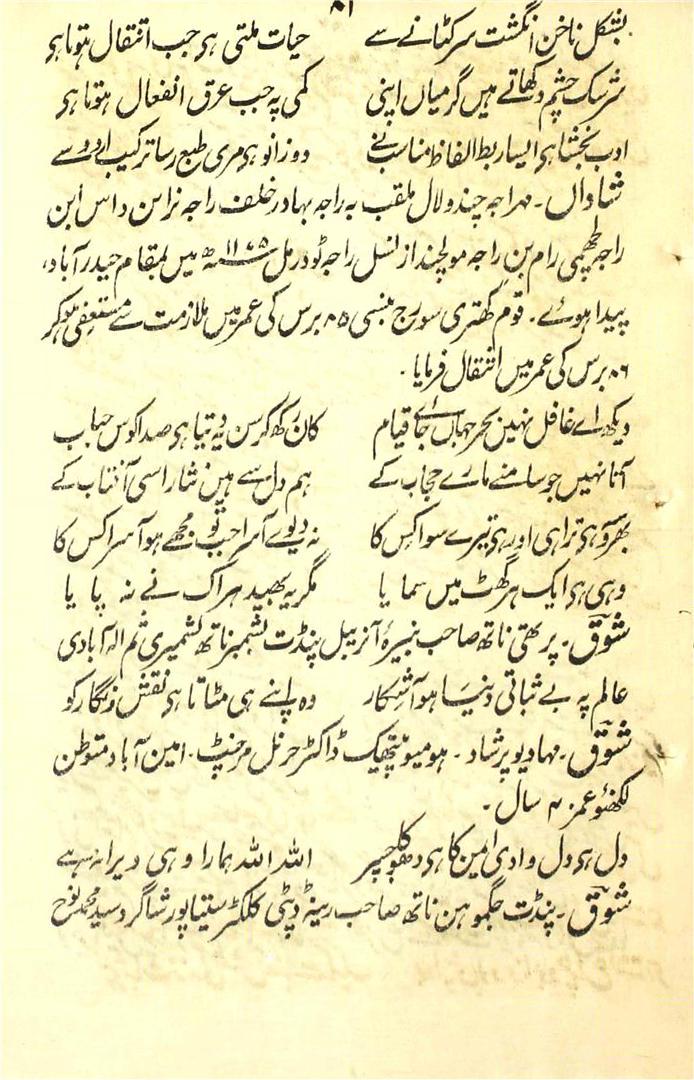 ۸۱
بشکل ناخن انگشت سر کٹانے سے حیات ملتی ہی جب انتقال ہوتا ہی
سرشک چشم دکھاتے ہیں گرمیاں اپنی کمی پہ جب عرق انفعال ہوتا ہی
ادب بخشتا ہی ایسا ربط الفاظ مناسب نے دو زانو ہی مری طبع رسا ترکیب اردو سے
شاداں ۔ مہراجہ چندو لال ملقب بہ راجہ بہادر خلف راجہ نراین داس ابن
راجہ لچھمی رام بن راجہ مولچند از نسل راجہ ٹوڈرمل ۱۱۷۵ھ میں بمقام حیدرآباد،
پیدا ہوئے ۔ قوم کھتری سورج بنسی ۸۵ برس کی عمر میں ملازمت سے مستعفی ہو کر
۸۶ برس کی عمر میں انتقال فرمایا ۔
دیکھ اے غافل نہیں بحر جہاں جائے قیام کان رکھ کر سن یہ دیتا ہی صدا کوس حباب
آتا نہیں جو سامنے مارے حجاب کے ہم دل سے ہیں نثار اسی آفتاب کے
بھروسہ ہی ترا ہی اور ہی تیرے سوا کس کا نہ دیوے آسرا جب تو مجھے ہو آسرا کس کا
وہی ہی ایک ہر گھٹ میں سمایا مگر یہ بھید ہر اک نے نہ پایا
شوق ۔ پرتھی ناتھ صاحب نبیرۂ آنریبل پنڈت بشمبر ناتھ کشمیری ثم الہ آبادی
عالم پہ بے ثباتی دنیا ہو آشکار وہ اپنے ہی مٹاتا ہی نقش و نگار کو
شوق ۔ مہادیو پرشاد ۔ ہومیوپیتھیک ڈاکٹر جرنل مرچنٹ ۔ امین آباد متوطن
لکھنؤ عمر ۴۰ سال ۔
دل ہی دل وادی امین کا ہی دھوکا جسپر اللہ اللہ ہمارا وہی ویرانہ ہے
شوق ۔ پنڈت جگموہن ناتھ صاحب رینہ ڈپٹی کلکٹر سیتاپور شاگرد سید محمد نوح